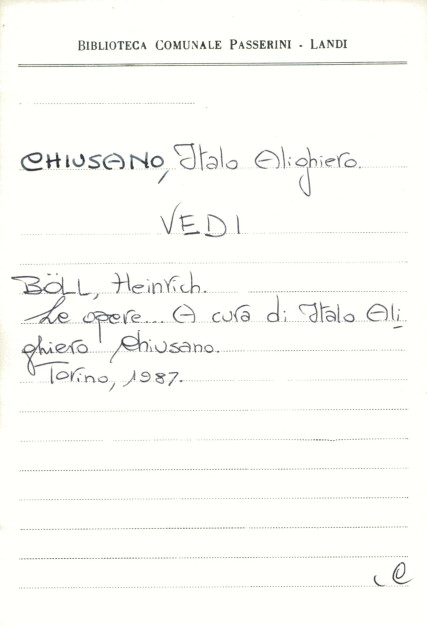 BIBLIOTECA COMUNALE PASSERINI - LANDI
CHIUSANO, Italo Alighiero.
VEDI
BÖLL, Heinrich.
Le opere... A cura di Italo Ali
ghiero Chiusano.
Torino, 1987.